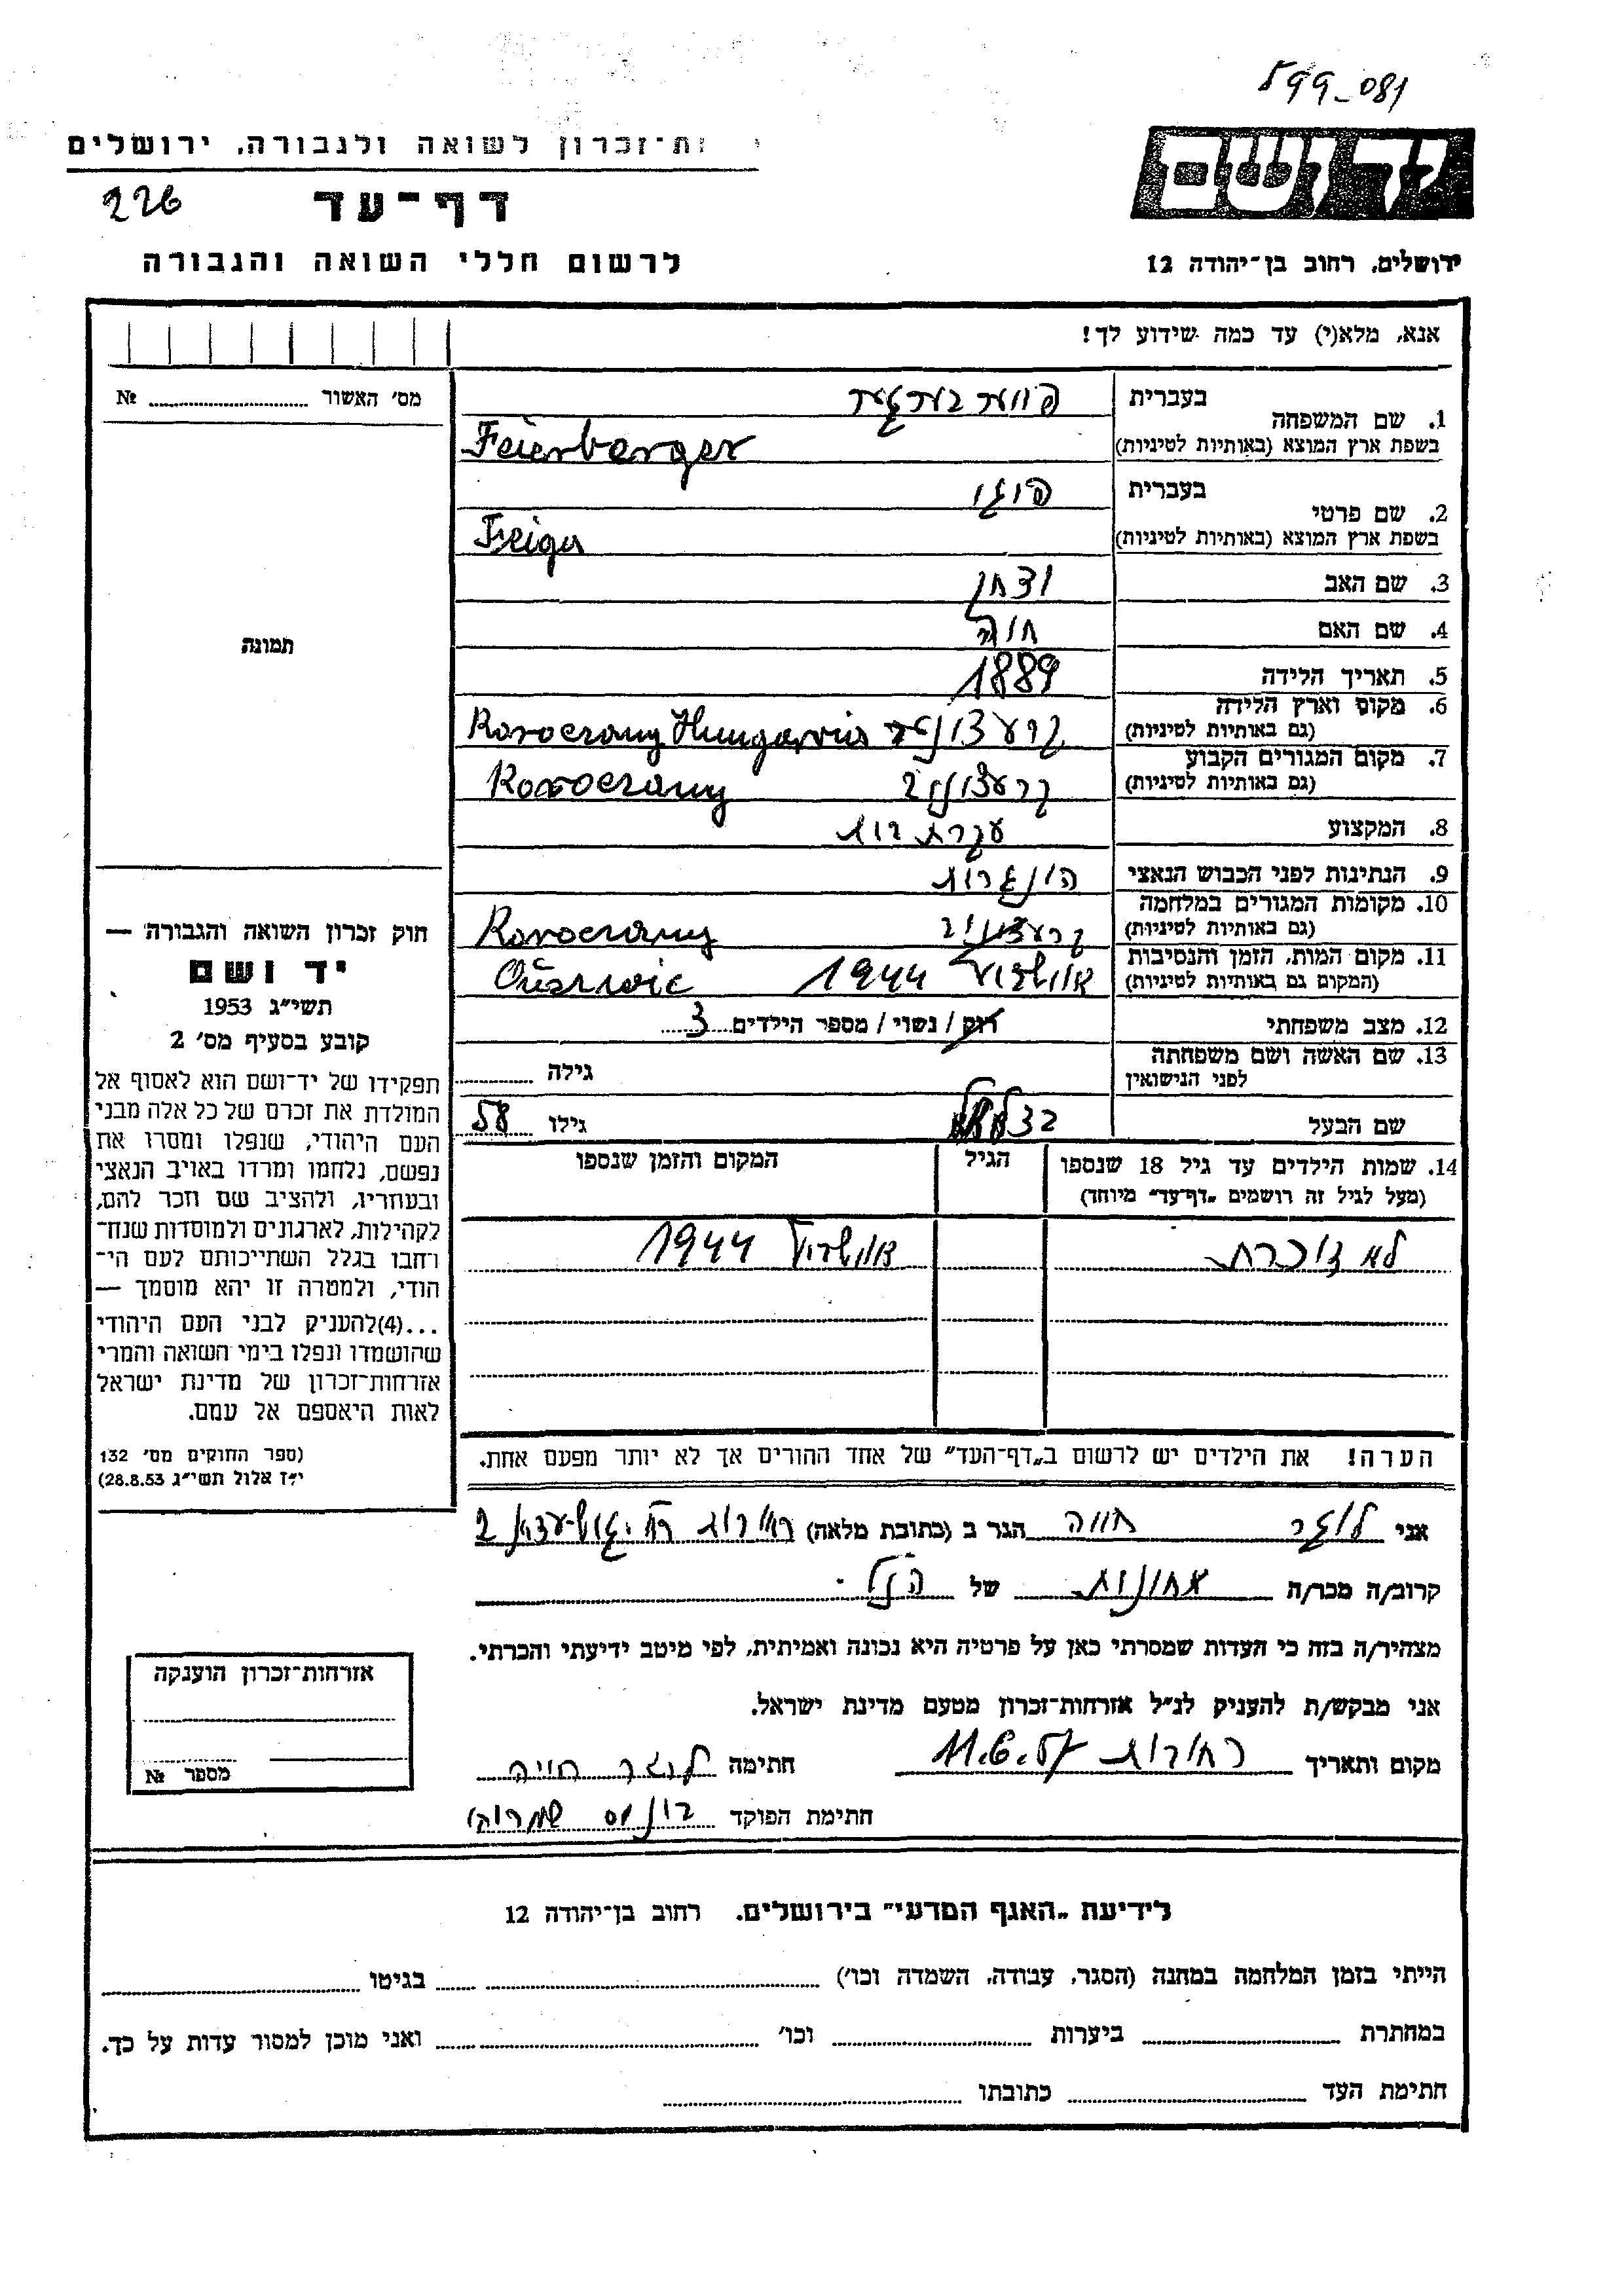 599-081
ת־זכרון לשואה ולגבורה, ירושלים
יד ושם
226
דף־עד
לרשום חללי השואה והגבורה
ירושלים, רחוב בן־יהודה 12
אנא, מלא(י) עד כמה שידוע לך!
מס' האשור № ........
1. שם המשפחה
בעברית
בשפת ארץ המוצא (באותיות לטיניות) Feierberger
2. שם פרטי
בעברית פייגי
בשפת ארץ המוצא (באותיות לטיניות) Feiga
3. שם האב יצחק
4. שם האם חוה
5. תאריך הלידה 1889
6. מקום וארץ הלידה
(גם באותיות לטיניות)
7. מקום המגורים הקבוע
(גם באותיות לטיניות)
8. המקצוע עקרת בית
9. הנתינות לפני הכבוש הנאצי הונגרית
10. מקומות המגורים במלחמה
(גם באותיות לטיניות)
11. מקום המות, הזמן והנסיבות
(המקום גם באותיות לטיניות) אושויץ 1944
12. מצב משפחתי רוק / נשוי / מספר הילדים 3
13. שם האשה ושם משפחתה
לפני הנישואין גילה ........
שם הבעל גילו 58
14. שמות הילדים עד גיל 18 שנספו
(מעל לגיל זה רושמים „דף־עד" מיוחד)
הגיל
המקום והזמן שנספו
לא זוכרת אושויץ 1944
הערה! את הילדים יש לרשום ב„דף־העד" של אחד ההורים אך לא יותר מפעם אחת.
תמונה
חוק זכרון השואה והגבורה —
יד ושם
תשי"ג 1953
קובע בסעיף מס' 2
תפקידו של יד־ושם הוא לאסוף אל
המולדת את זכרם של כל אלה מבני
העם היהודי, שנפלו ומסרו את
נפשם, נלחמו ומרדו באויב הנאצי
ובעוזריו, ולהציב שם וזכר להם,
לקהילות, לארגונים ולמוסדות שנח־
רחבו בגלל השתייכותם לעם הי־
הודי, ולמטרה זו יהא מוסמך —
...(4)להעניק לבני העם היהודי
שהושמדו ונפלו בימי השואה והמרי
אזרחות־זכרון של מדינת ישראל
לאות היאספם אל עמם.
(ספר החוקים מס' 132
י"ז אלול תשי"ג 28.8.53)
אני חווה הגר ב (כתובת מלאה)
קרוב/ה מכר/ה של הנ"ל.
מצהיר/ה בזה כי העדות שמסרתי כאן על פרטיה היא נכונה ואמיתית, לפי מיטב ידיעתי והכרתי.
אני מבקש/ת להעניק לנ"ל אזרחות־זכרון מטעם מדינת ישראל.
מקום ותאריך רחובות 11.6.57 חתימה
חתימת הפוקד
אזרחות־זכרון הוענקה
מספר №
לידיעת „האגף המדעי" בירושלים. רחוב בן־יהודה 12
הייתי בזמן המלחמה במחנה (הסגר, עבודה, השמדה וכו') ........ בגיטו ........
במחתרת ........ ביערות ........ וכו' ........ ואני מוכן למסור עדות על כך.
חתימת העד ........ כתובתו ........